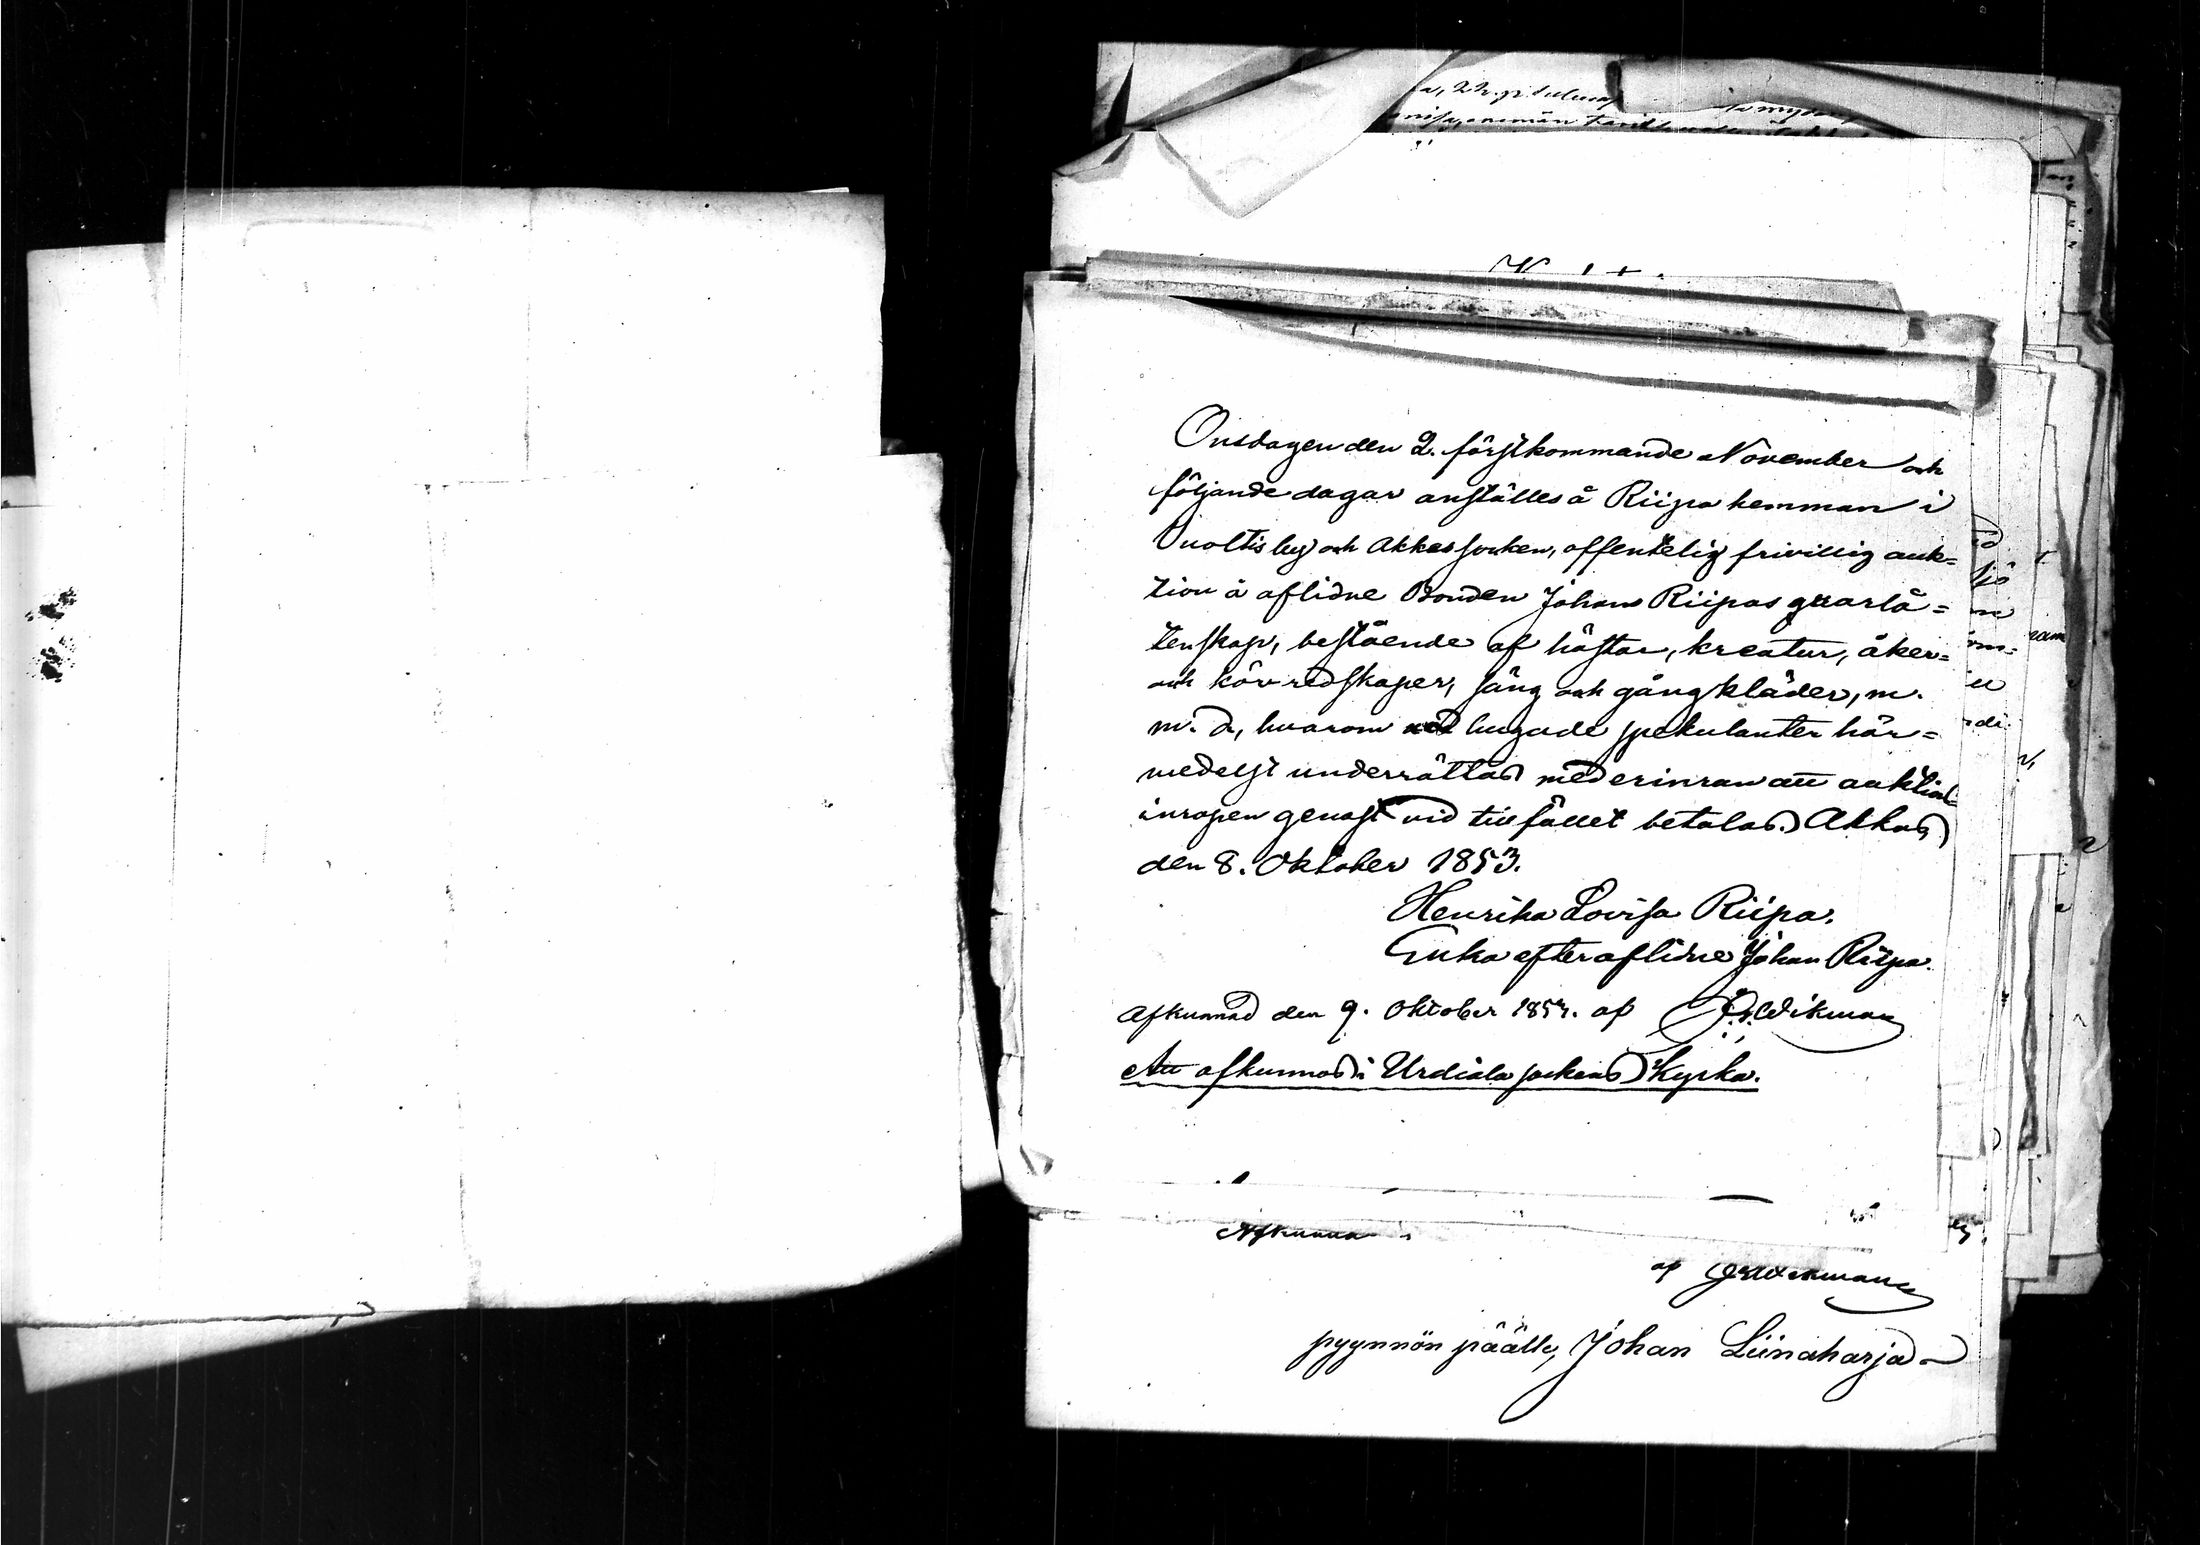 Onsdagen den 2. förstkommande November och
följande dagar anställes å Riipa hemman i
Nuoltis by och Akkas socken, offentelig frivillig auk=
tion å aflidne Bonden Johan Riipas qvarlå=
tenskap, bestående af hästar, kreatur, åker=
och körredskaper, säng och gångkläder, m.
m. d, hvarom hugade spekulanter här=
medelst underrättas med erinran att auktion=
inropen genast vid tillfället betalas. Akkas
den 8. Oktober 1853.
Henrika Lovisa Riipa.
Enka efter aflidne Johan Riipa.
Afkunnad den 9. Oktober 1853. af Wikman
Att afkunnas i Urdiala sockens Kyrka.
Afkunna
af
pyynnön päälle, Johan Liinaharja